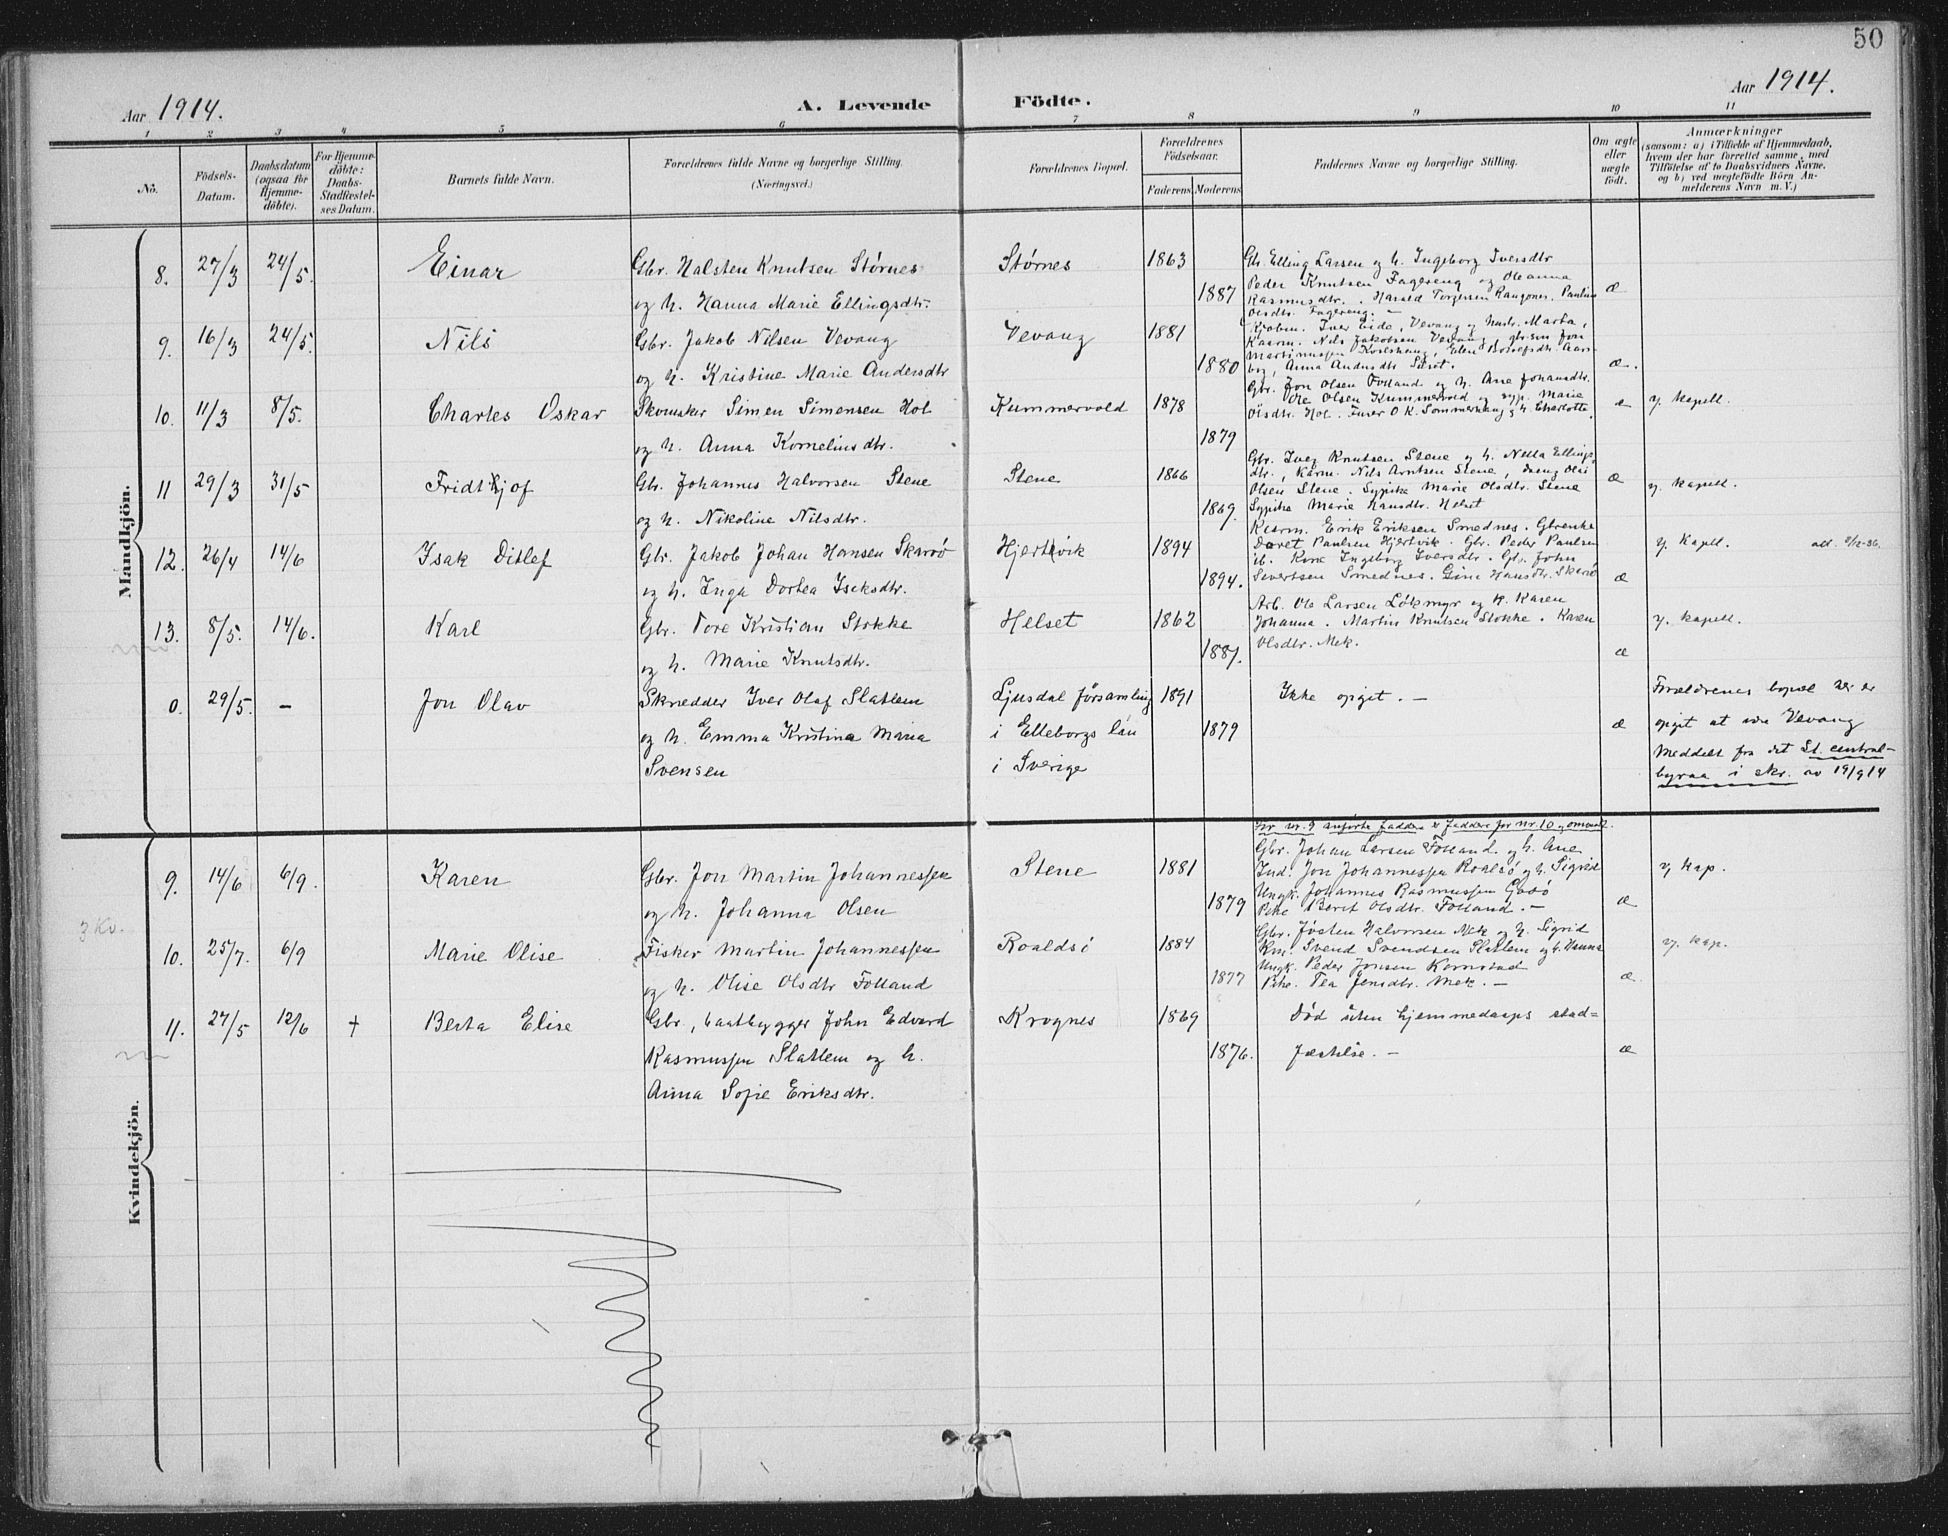 50
Aar 1914.
A. Levende Födte.
Aar 1914.
1 2 3 4 5 6 7 8 9 10 11
No.
Födsels-
Datum.
Daabsdatum
(ogsaa för
Hjemme-
döbte).
For Hjemme-
döbte:
Daabs-
Stadfæstel-
ses Datum.
Barnets fulde Navn.
Forældrenes fulde Navne og borgerlige Stilling.
(Næringsvei.)
Forældrenes Bopæl.
Forældrenes
Födselsaar.
Faderens. Moderens.
Faddernes Navne og borgerlige Stilling.
Om ægte
eller
uægte
födt.
Anmærkninger
(saasom: a) i Tilfælde af Hjemmedaab,
hvem der har forrettet samme, med
Tilföielse af to Daabsvidners Navne,
og b) ved uægtefödte Börn An-
melderens Navn m. V.)
Mandkjön.
8. 27/3 24/5. Einar
Gbr. Halsten Knutsen Störnes
og h. Hanna Marie Ellingsdtr.
Störnes 1863
1887
Gbr. Elling Larsen og h. Ingeborg Iversdtr
Peder Knutsen Fagereng og Oleanna
Rasmusdtr. . Harald Torgersen
Olsdtr. Fagereng. —
æ
9. 16/3 24/5. Nils
Gbr. Jakob Nilsen Vevang
og h. Kristine Marie Andersdtr
Vevang 1881
1880
Kjöbm. Iver Eide, Vevang og hustr. Marta,
Kaarm. Nils Jakobsen Vevang, gbr.sön Jon
æ.
10. 11/3 8/5. Charles Oskar
Skomaker Simen Simensen Hol
og h. Anna Kornelius dtr.
Kummervold 1878
1879
Gbr. Jon Olsen Folland og h. Ane Johansdtr.
Ole Olsen Kummervold og syp. Marie
Olsdtr. Hol. O K. Sommerhaug og h. Charlotte.
æ
y. kapell.
11 29/3 31/5 Fridtjof
Gbr. Johannes Halvorsen Stene
og h. Nikoline Nilsdtr.
Stene 1866
1869.
Gbr. Iver Knutsen Stene og h. Nella Ellings
dtr., Kårm. Nils Arntsen Stene, Dreng Olai
Olsen Stene. Sypike Marie Olsdtr. Stene
Sypike Marie Hansdtr. Helset
æ
y. kapell.
12. 26/4 14/6 Isak Ditlef
Gbr. Jakob Johan Hansen Skarsö
og h. Inga Dortea Isaksdtr.
Hjertvik 1894
1894.
Kaarm. Erik Eriksen Smednes. Gbrenke
Doret Paulsen Hjertvik. Gbr. Peder Paulsen
ib. Kone Ingeborg Iversdtr. Gbr. John
Sivertsen Smednes. Gine Hansdtr. Skarsö
æ
y. kapell.
13. 8/5. 14/6. Karl
Gbr. Tore Kristian Stokke
og h. Marie Knutsdtr.
Helset 1862
1881.
Arb. Ole Larsen Lökmyr og h. Karen
Johanna. Martin Knutsen Stokke. Karen
Olsdtr. Mek.
æ
y. kapell.
0. 29/5. — Jon Olav
Skredder Iver Olaf Slatlem
og h. Emma Kristina Maria
Svensen
Ljusdal församling
i Elleborgs län
i Sverige
1891
1879
Ikke opgit. —
æ
Forældrenes bopæl her er
opgit at være Vevang
Meddelt fra det St. central-
byraa i skr. av 19/9 14
Kvindekjön.
3 Kv.
For nr. 9 anförte faddere er faddere for nr. 10 og omvendt.
9. 14/6 6/9. Karen
Gbr. Jon Martin Johannessen
og h. Johanna Olsen
Stene 1881
1879
Gbr. Johan Larsen Folland og h. Ane
Ind. Jon Johannessen Roalsö og h. Sigrid
Ungk. Johannes Rasmussen Gåsö
Pike Berit Olsdtr. Folland. —
æ
y kap.
10. 25/7. 6/9 Marie Olise
Fisker Martin Johannessen
og h. Olise Olsdtr Folland
Roaldsö 1884
1877
Gbr. Jösten Halvorsen Mek og h. Sigrid
Km. Svend Svendsen Slatlem og h. Hanna
Ungk. Peder Jonsen Kornstad
Pike. Tea Jensdtr. Mek. —
æ.
y. kap.
11. 27/5 12/6 + Berta Elise
Gbr., baatbygger John Edvard
Rasmussen Slatlem og h.
Anna Sofie Eriksdtr.
Krognes 1869
1876.
Död uten hjemmedaaps stad=
fæstelse. —
æ